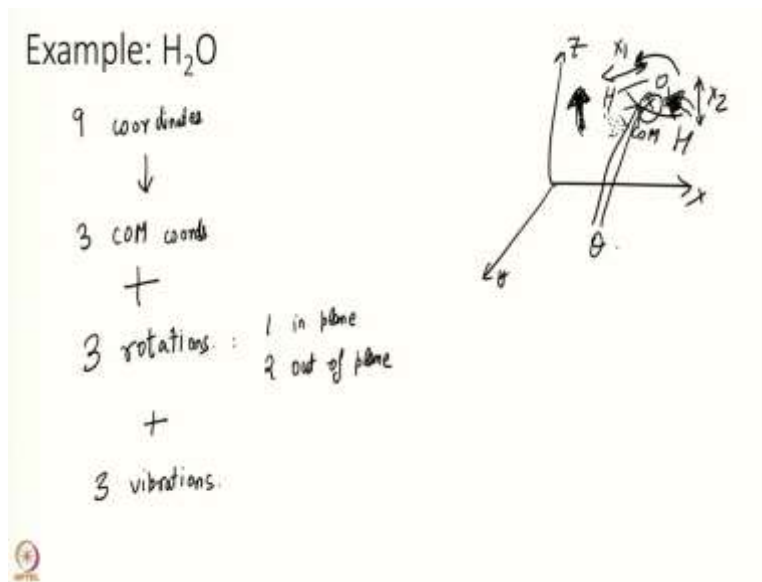 Example: H₂O
9 coordinates
↓
3 COM coords
+
3 rotations : 1 in plane
2 out of plane
+
3 vibrations.
Z
x₁
O
H
x₂
COM
H
X
y
θ.
NPTEL